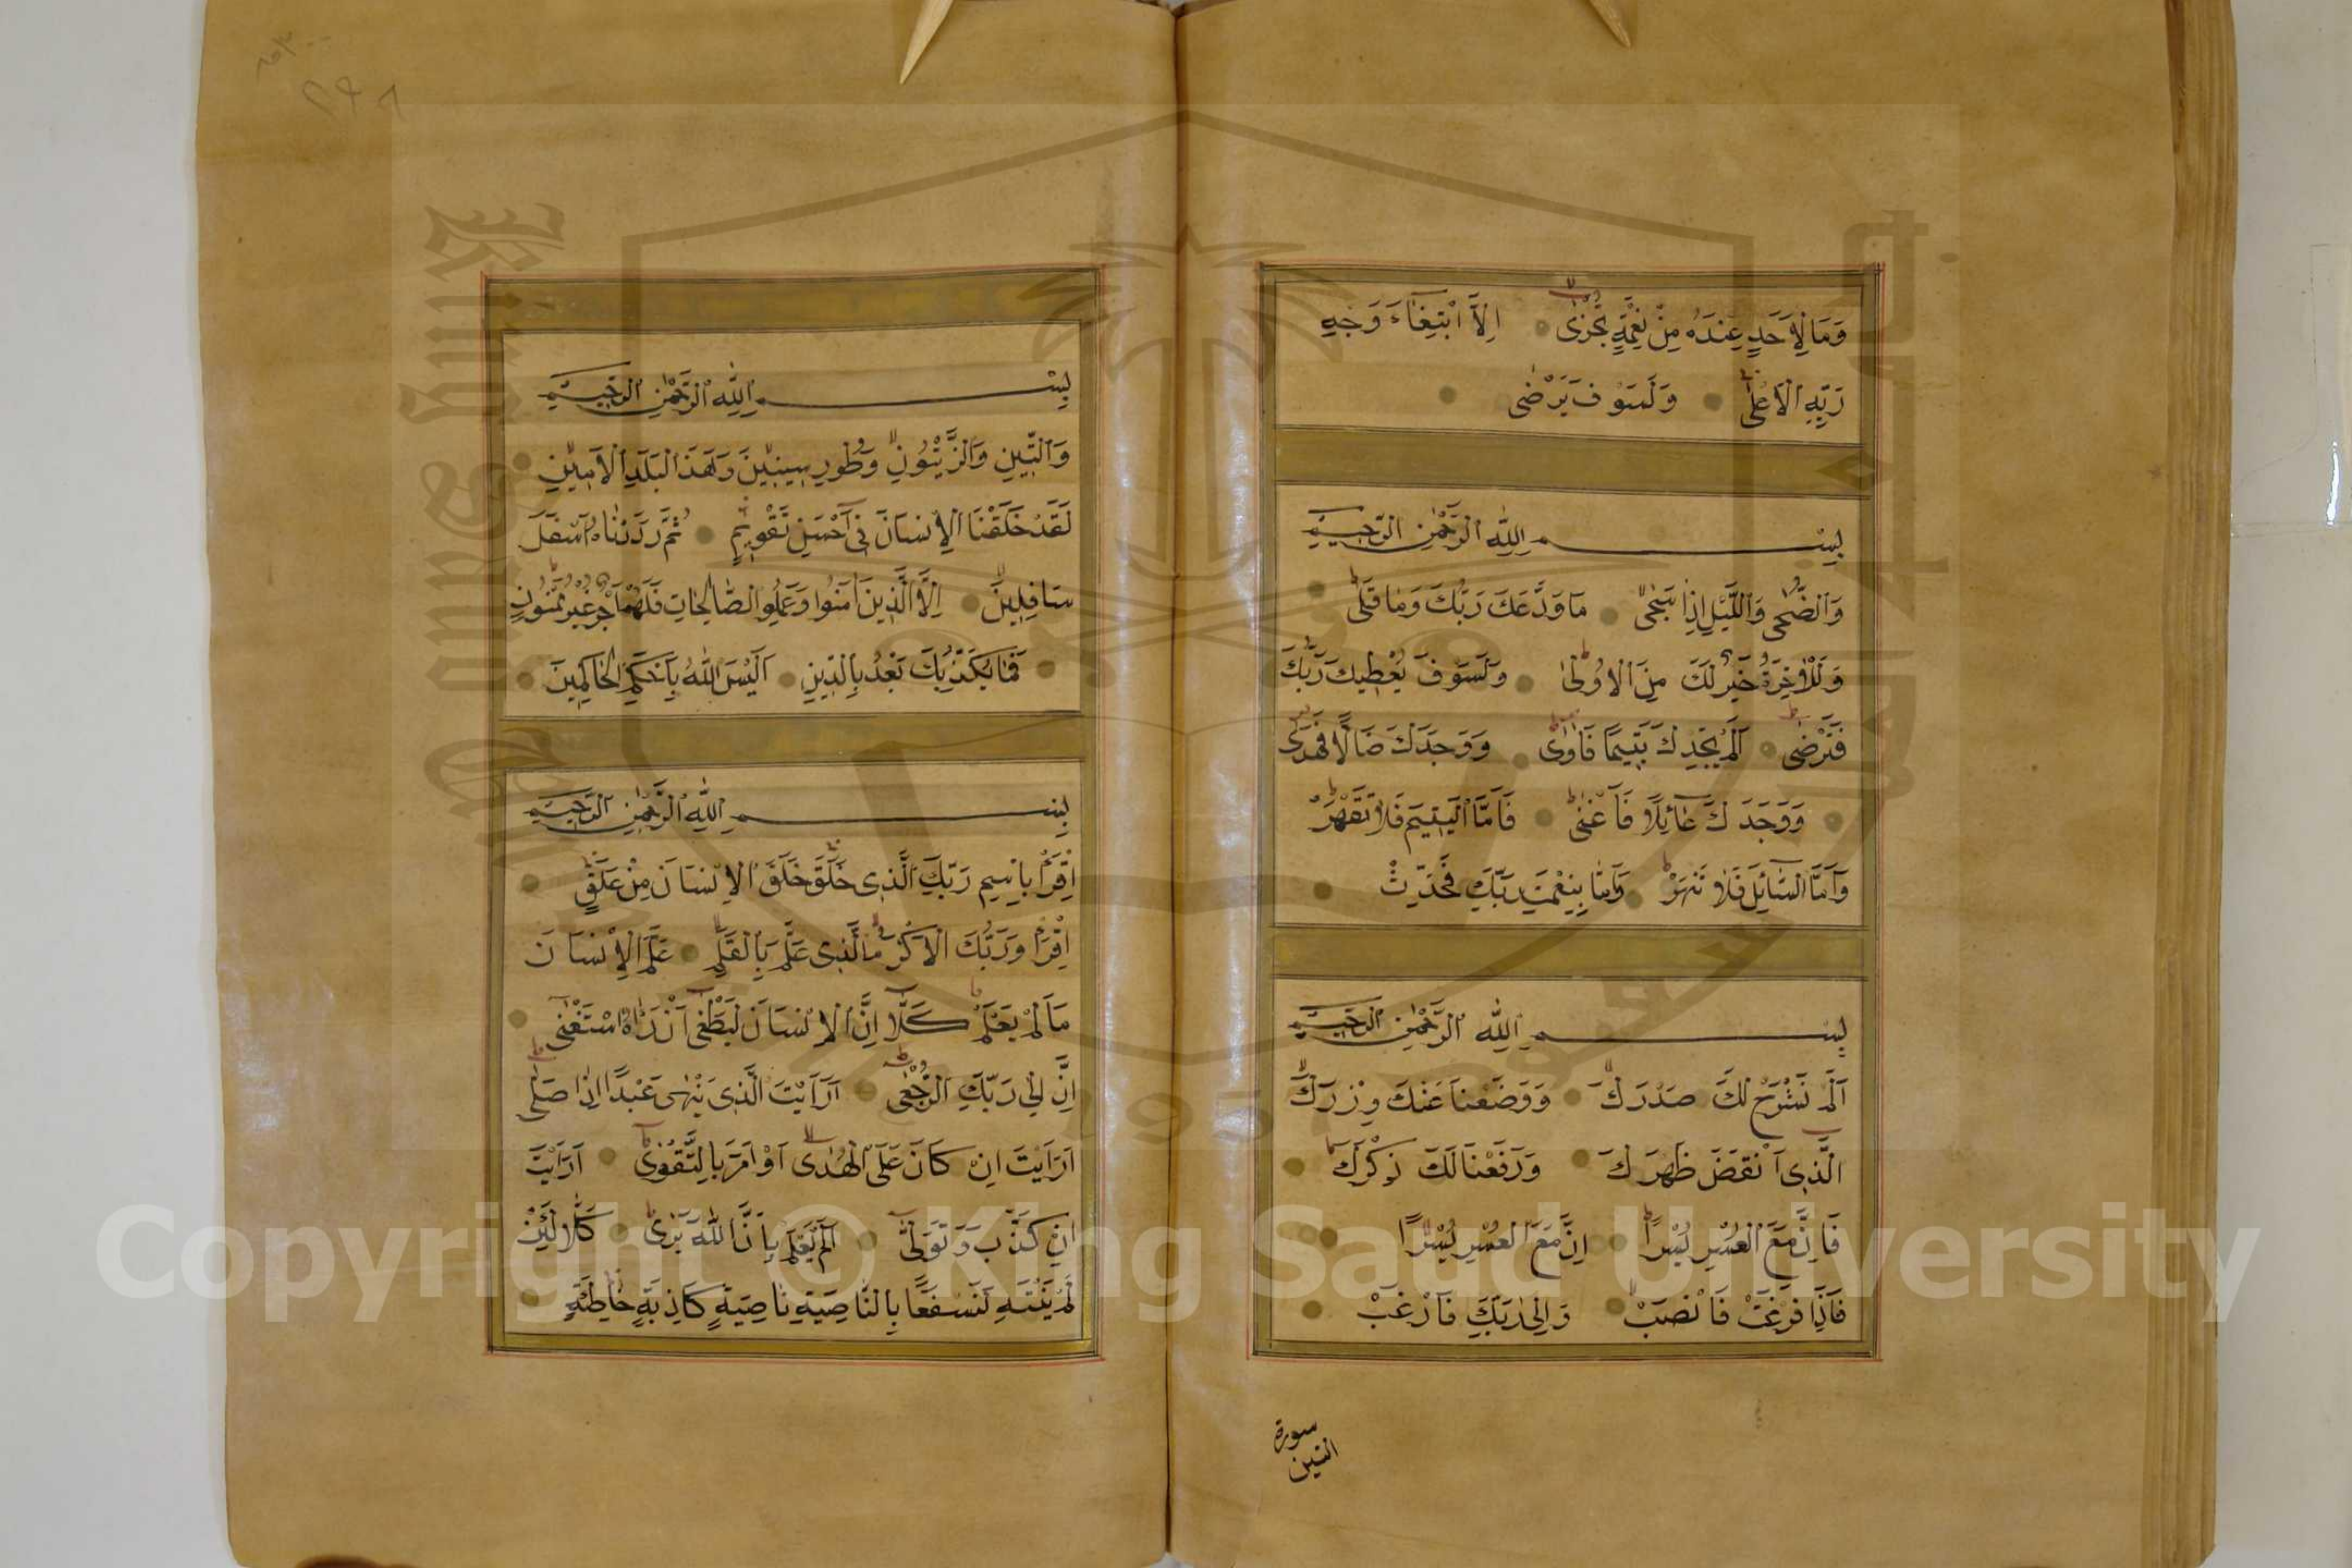 وَمَا لِاَحَدٍ عِنْدَهُ مِنْ نِعْمَةٍ تُجْزٰى اِلَّا ابْتِغَاءَ وَجْهِ
رَبِّهِ الْاَعْلٰى وَلَسَوْفَ يَرْضٰى
بِسْمِ اللّٰهِ الرَّحْمٰنِ الرَّحِيمِ
وَالضُّحٰى وَاللَّيْلِ اِذَا سَجٰى مَا وَدَّعَكَ رَبُّكَ وَمَا قَلٰى
وَلَلْاٰخِرَةُ خَيْرٌ لَكَ مِنَ الْاُولٰى وَلَسَوْفَ يُعْطِيكَ رَبُّكَ
فَتَرْضٰى اَلَمْ يَجِدْكَ يَتِيمًا فَاٰوٰى وَوَجَدَكَ ضَالًّا فَهَدٰى
وَوَجَدَكَ عَائِلًا فَاَغْنٰى فَاَمَّا الْيَتِيمَ فَلَا تَقْهَرْ
وَاَمَّا السَّائِلَ فَلَا تَنْهَرْ وَاَمَّا بِنِعْمَةِ رَبِّكَ فَحَدِّثْ
بِسْمِ اللّٰهِ الرَّحْمٰنِ الرَّحِيمِ
اَلَمْ نَشْرَحْ لَكَ صَدْرَكَ وَوَضَعْنَا عَنْكَ وِزْرَكَ
الَّذِى اَنْقَضَ ظَهْرَكَ وَرَفَعْنَا لَكَ ذِكْرَكَ
فَاِنَّ مَعَ الْعُسْرِ يُسْرًا اِنَّ مَعَ الْعُسْرِ يُسْرًا
فَاِذَا فَرَغْتَ فَانْصَبْ وَاِلٰى رَبِّكَ فَارْغَبْ
سورة
التين
٢٩٨
بِسْمِ اللّٰهِ الرَّحْمٰنِ الرَّحِيمِ
وَالتِّينِ وَالزَّيْتُونِ وَطُورِ سِينِينَ وَهَذَا الْبَلَدِ الْاَمِينِ
لَقَدْ خَلَقْنَا الْاِنْسَانَ فِى اَحْسَنِ تَقْوِيمٍ ثُمَّ رَدَدْنَاهُ اَسْفَلَ
سَافِلِينَ اِلَّا الَّذِينَ اٰمَنُوا وَعَمِلُوا الصَّالِحَاتِ فَلَهُمْ اَجْرٌ غَيْرُ مَمْنُونٍ
فَمَا يُكَذِّبُكَ بَعْدُ بِالدِّينِ اَلَيْسَ اللّٰهُ بِاَحْكَمِ الْحَاكِمِينَ
بِسْمِ اللّٰهِ الرَّحْمٰنِ الرَّحِيمِ
اِقْرَأْ بِاسْمِ رَبِّكَ الَّذِى خَلَقَ خَلَقَ الْاِنْسَانَ مِنْ عَلَقٍ
اِقْرَأْ وَرَبُّكَ الْاَكْرَمُ الَّذِى عَلَّمَ بِالْقَلَمِ عَلَّمَ الْاِنْسَانَ
مَا لَمْ يَعْلَمْ كَلَّا اِنَّ الْاِنْسَانَ لَيَطْغٰى اَنْ رَاٰهُ اسْتَغْنٰى
اِنَّ اِلٰى رَبِّكَ الرُّجْعٰى اَرَاَيْتَ الَّذِى يَنْهٰى عَبْدًا اِذَا صَلّٰى
اَرَاَيْتَ اِنْ كَانَ عَلَى الْهُدٰى اَوْ اَمَرَ بِالتَّقْوٰى اَرَاَيْتَ
اِنْ كَذَّبَ وَتَوَلّٰى اَلَمْ يَعْلَمْ بِاَنَّ اللّٰهَ يَرٰى كَلَّا لَئِنْ
لَمْ يَنْتَهِ لَنَسْفَعًا بِالنَّاصِيَةِ نَاصِيَةٍ كَاذِبَةٍ خَاطِئَةٍ
Copyright © King Saud University
King Saud
195